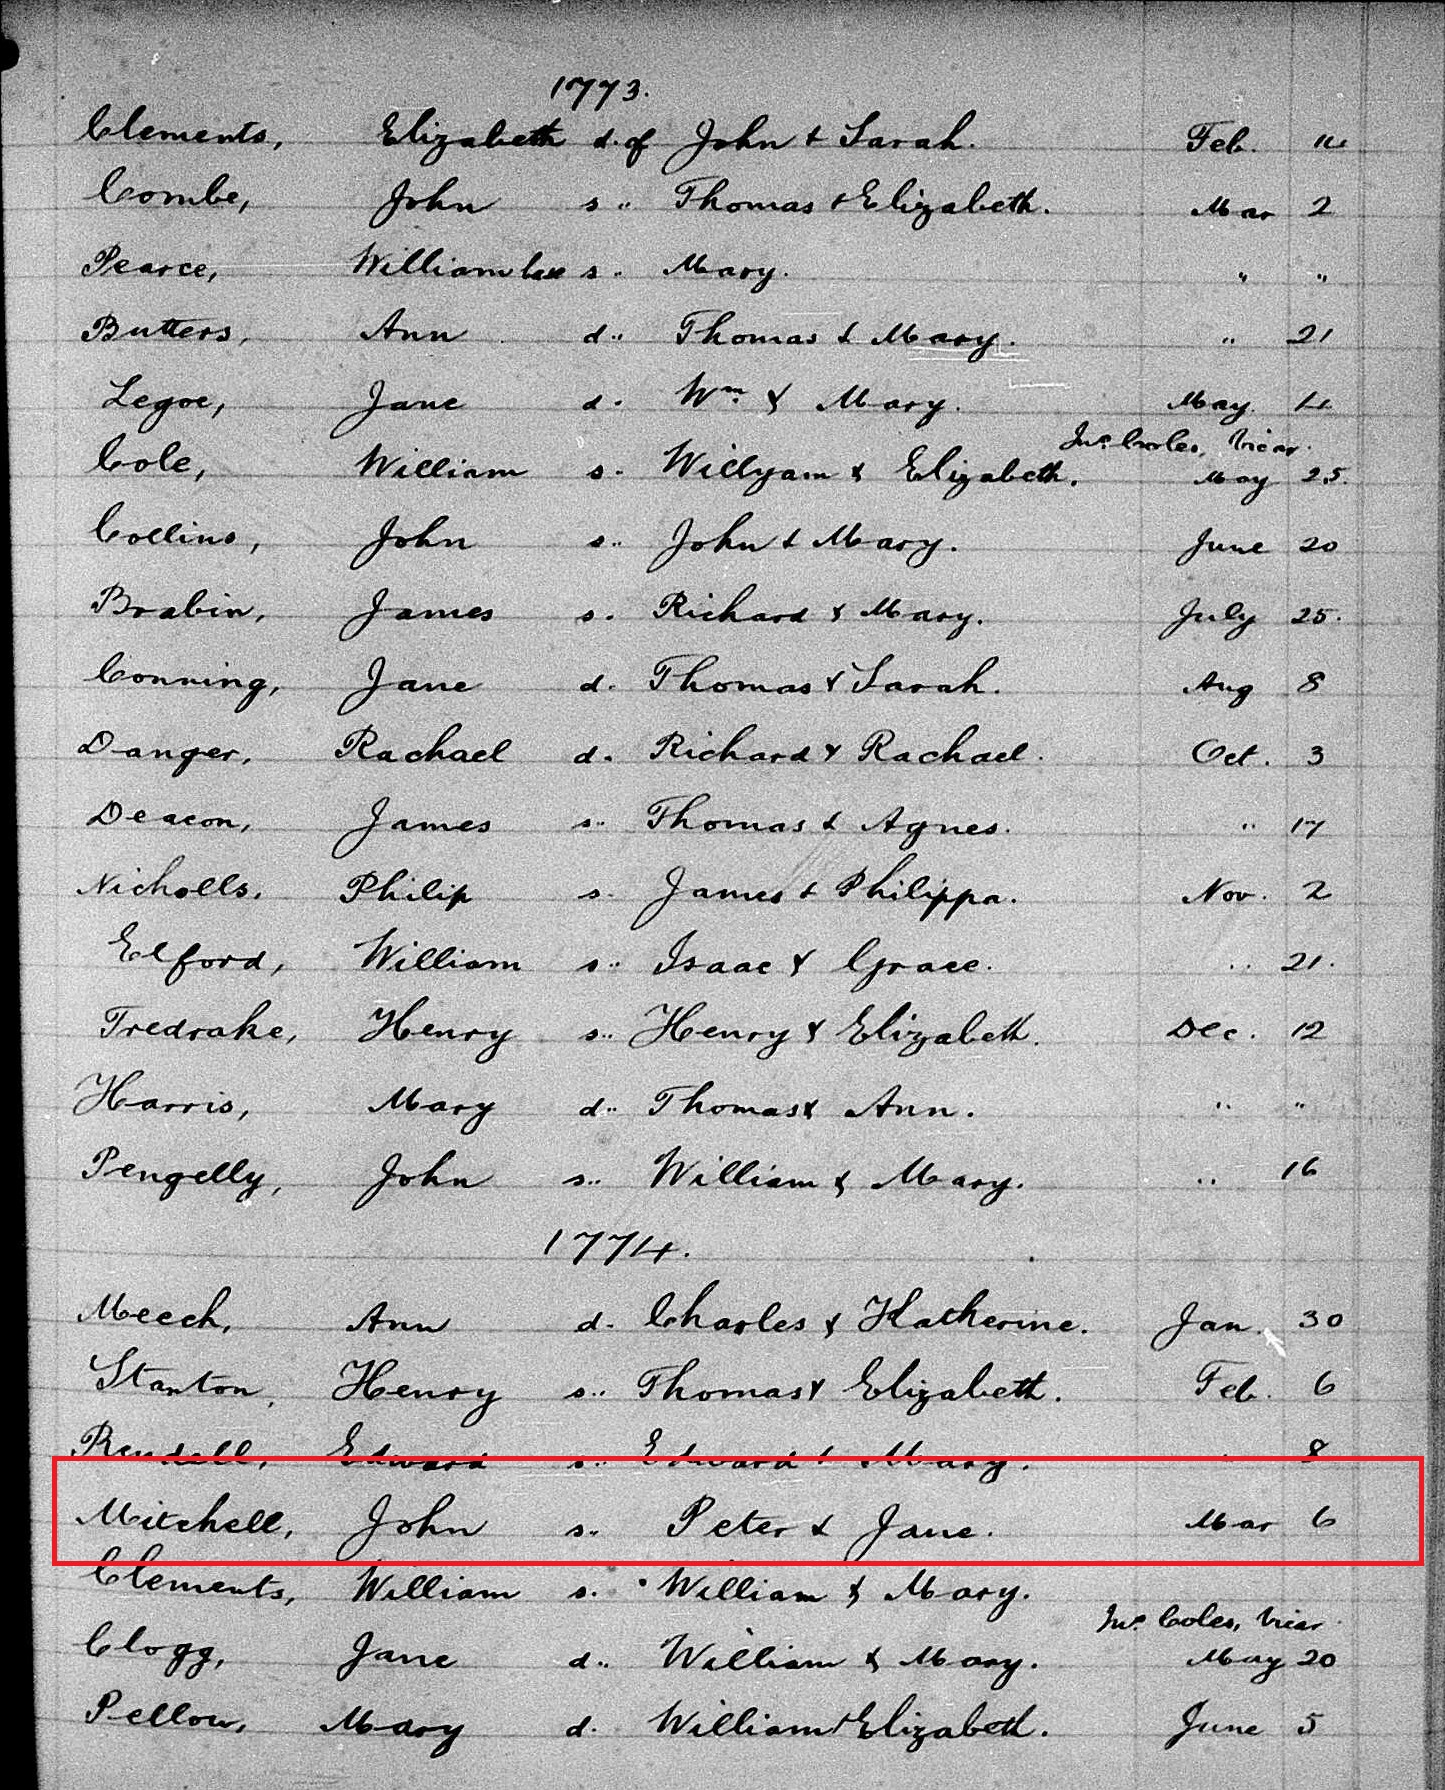 1773.
Clements, Elizabeth d. of John & Sarah. Feb. 14
Combe, John s „ Thomas & Elizabeth. Mar 2
Pearce, William s „ Mary. „ „
Butters, Ann d „ Thomas & Mary. „ 21
Legoe, Jane d. Wm. & Mary. May 4
Jno. Coles, Vicar.
Cole, William s. Willyam & Elizabeth. May 25.
Collins, John s „ John & Mary. June 20
Brabin, James s. Richard & Mary. July 25.
Conning, Jane d. Thomas & Sarah. Aug 8
Danger, Rachael d. Richard & Rachael. Oct. 3
Deacon, James s „ Thomas & Agnes. „ 17
Nicholls, Philip s. James & Philippa. Nov. 2
Elford, William s „ Isaac & Grace. „ 21.
Tredrake, Henry s „ Henry & Elizabeth. Dec. 12
Harris, Mary d „ Thomas & Ann. „ „
Pengelly, John s „ William & Mary. „ 16
1774.
Meech, Ann d. Charles & Katherine. Jan. 30
Stanton, Henry s „ Thomas & Elizabeth. Feb. 6
Rendell, Edward s „ Edward & Mary. „ 8
Mitchell, John s „ Peter & Jane. Mar 6
Clements, William s. William & Mary.
Jno. Coles, Vicar
Clogg, Jane d „ William & Mary. May 20
Pellow, Mary d. William & Elizabeth. June 5